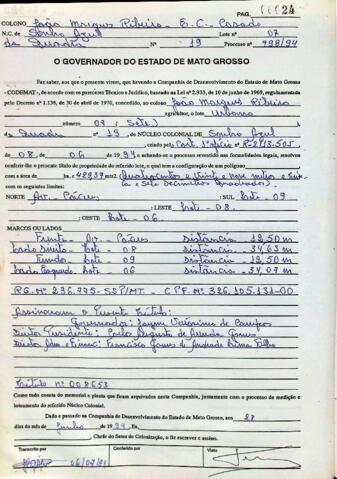 PAG. 24
COLONO João Marques Ribeiro - E. C. Casado
N.C. de Sonho Azul Lote nº 07
da Quadra Nº 19 Processo nº 798/94
O GOVERNADOR DO ESTADO DE MATO GROSSO
Faz saber, aos que a presente virem, que havendo a Companhia de Desenvolvimento do Estado de Mato Grosso
- CODEMAT -, de acordo com os pareceres Técnico e Jurídico, baseado na Lei nº 2.933, de 10 de junho de 1969, regulamentada
pelo Decreto nº 1.138, de 30 de abril de 1970, concedido, ao colono João Marques Ribeiro
agricultor, o lote Urbano
número 07 (Sete)
da Quadra nº 19, do NÚCLEO COLONIAL DE Sonho Azul
criado pela Cert. 1º Ofício R-2/13.505
de 08 de 06 de 1994 e achando-se o processo revestido das formalidades legais, resolveu
conferir o presente título de propriedade do referido lote, o qual tem a configuração de um polígono
com a área de ha. e 429,37 m² (Quatrocentos e Vinte e nove metros e trin-
ta e sete Decímetros Quadrados).
com os seguintes limites:
NORTE Av. SUL Lote - 09
LESTE Lote - 08.
OESTE Lote - 06.
MARCOS OU LADOS
Frente Av. Distância 12,50 m
Lado Direito Lote - 08 Distância 34,63 m
Fundo Lote - 09 Distância 12,50 m
Lado Esquerdo Lote - 06 Distância 34,07 m
RG. Nº 236.795 - SSP/MT. - CPF. Nº 326.105.131-00
Assinaram o Presente Título:
Governador: Jayme Veríssimo de Campos
Diretor Presidente: Carlos Augusto de Arruda Gomes
Diretor Adm. e Financ: Francisco Gomes de Andrade Lima Filho
Título nº 008653
Como tudo consta do memorial e planta que foram arquivados nesta Companhia, juntamente com o processo de medição e
loteamento do referido Núcleo Colonial.
Dado e passado na Companhia de Desenvolvimento do Estado de Mato Grosso, aos 28
dias do mês de Junho de 1994. Eu,
Chefe do Setor de Colonização, o fiz escrever e assino.
Transcrito por Conferido por Visto
06/07/94